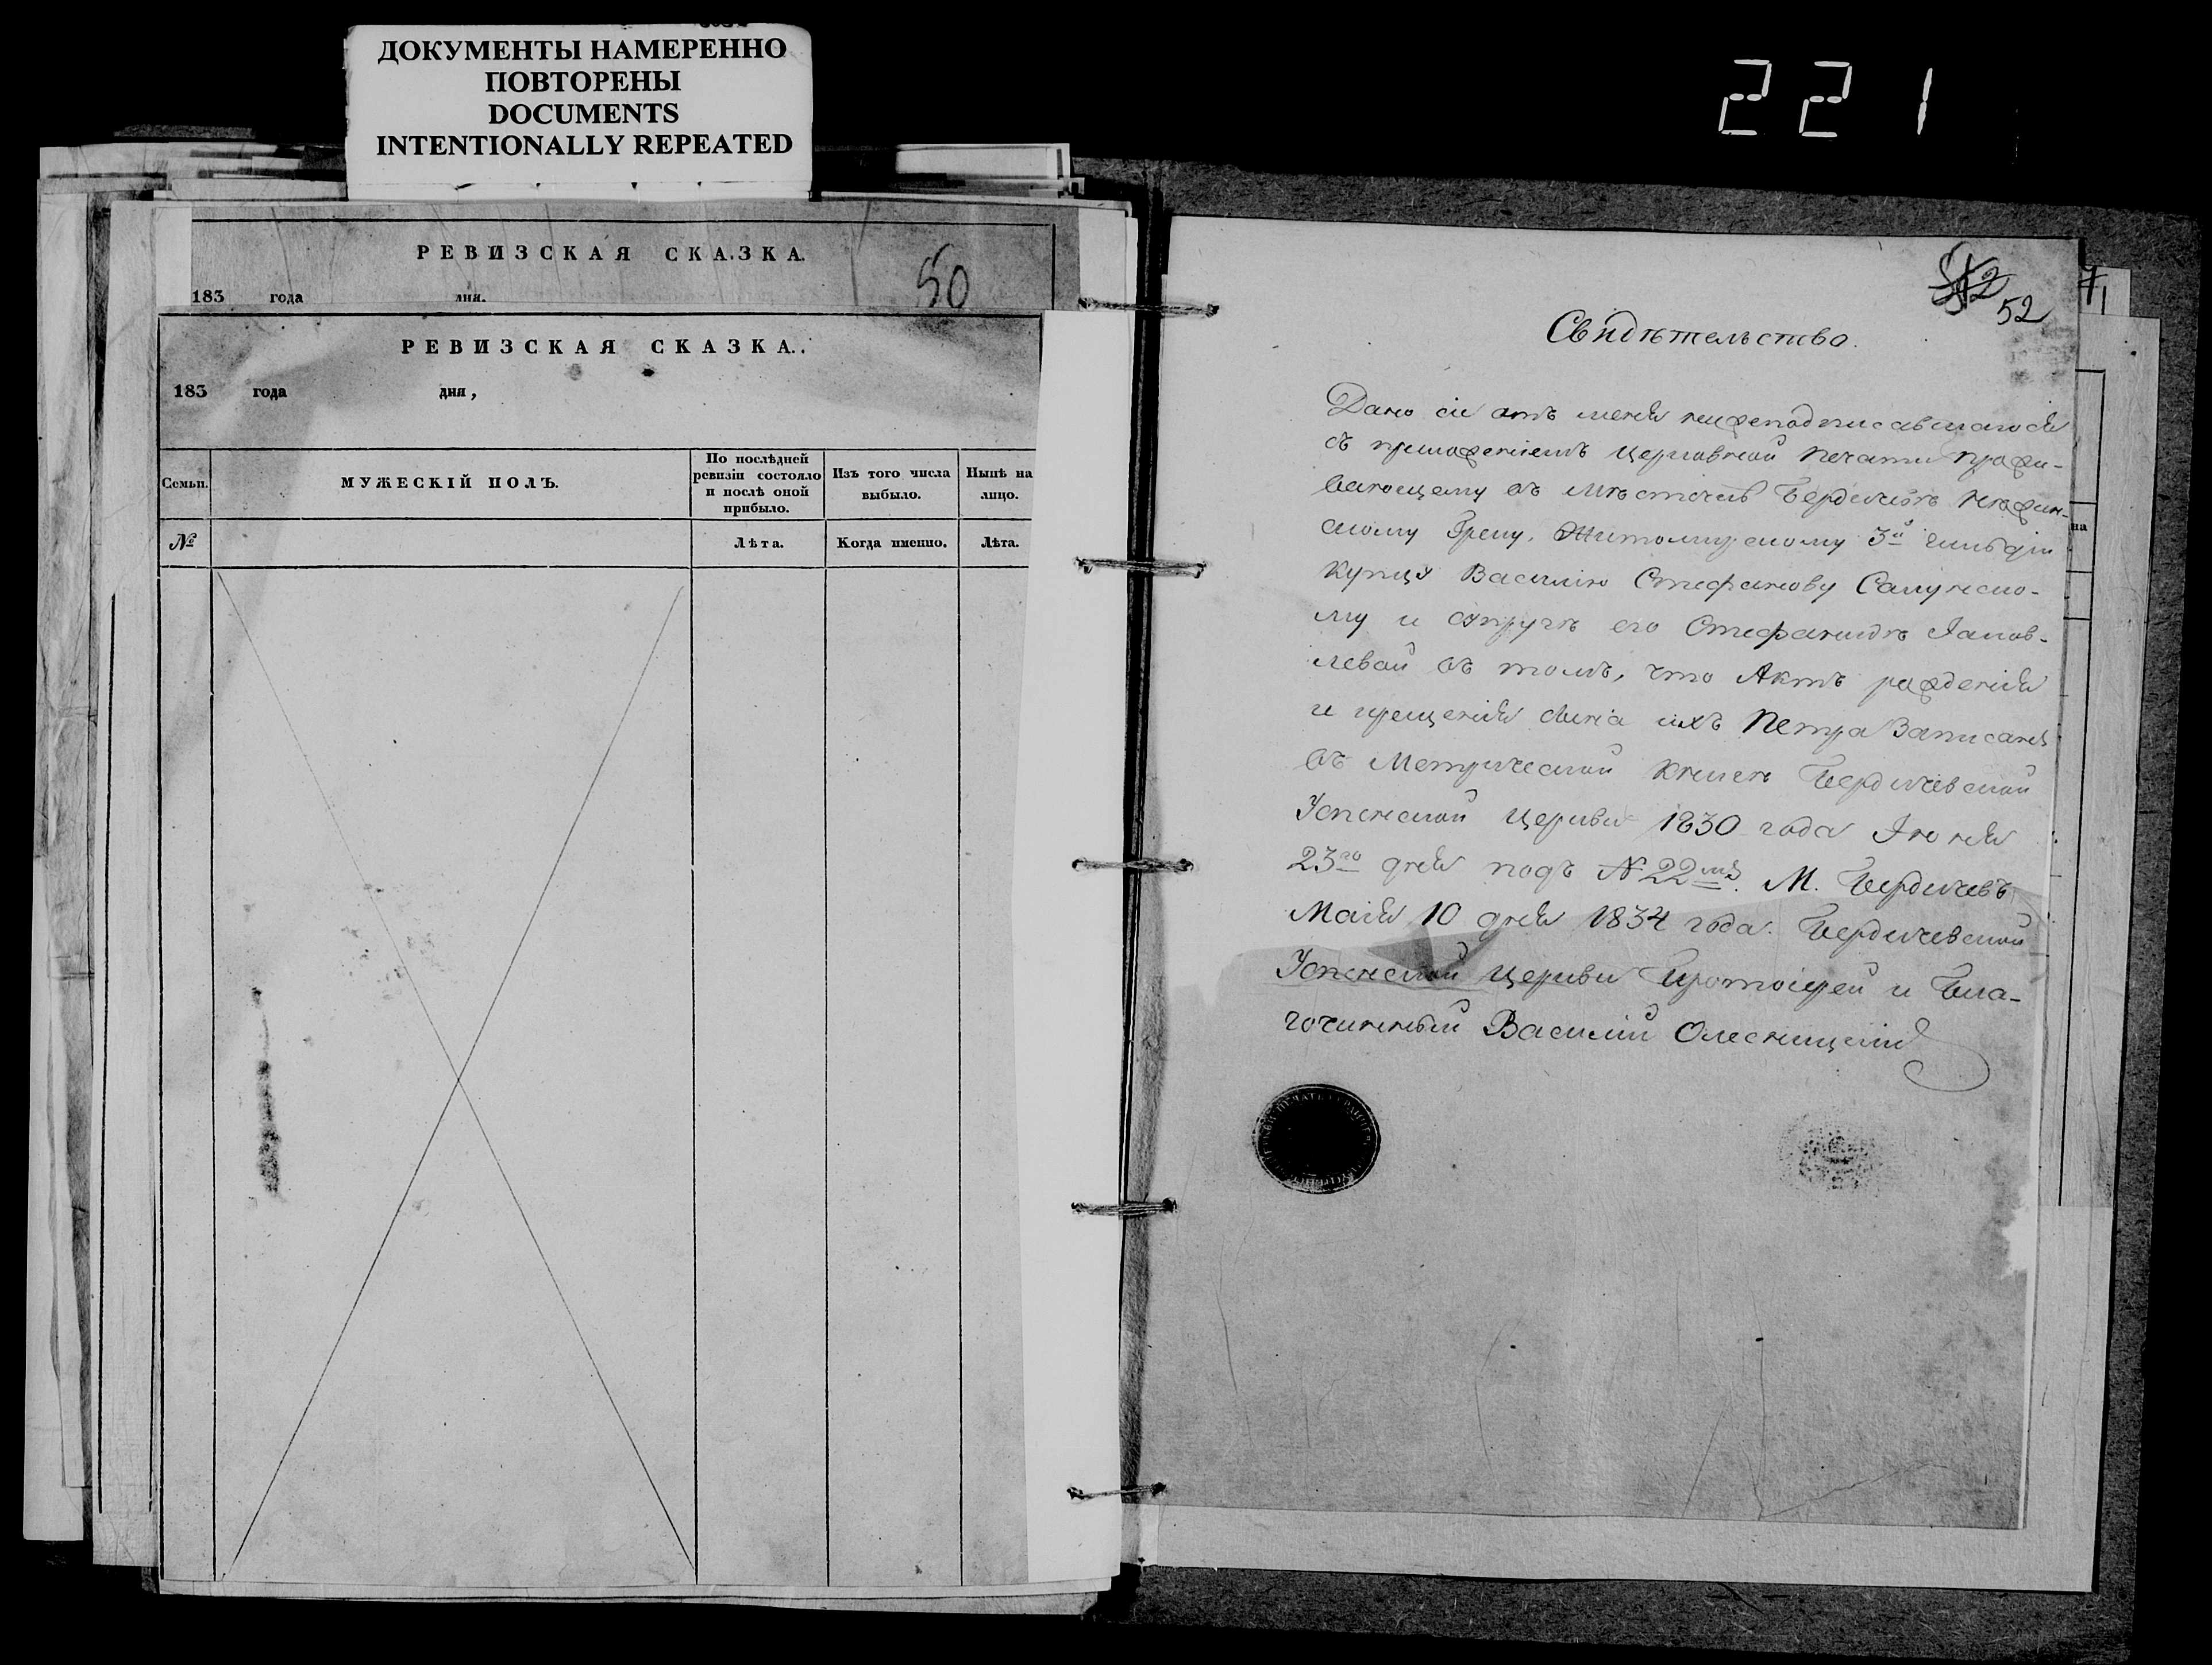 ДОКУМЕНТЫ НАМЕРЕННО
ПОВТОРЕНЫ
DOCUMENTS
INTENTIONALLY REPEATED
221
РЕВИЗСКАЯ СКАЗКА.
50
183 года дня.
РЕВИЗСКАЯ СКАЗКА.
183 года дня,
Семьи.
МУЖЕСКІЙ ПОЛЪ.
По послѣдней
ревизіи состояло
и послѣ оной
прибыло.
Изъ того числа
выбыло.
Нынѣ на
лицо.
№
Лѣта.
Когда именно.
Лѣта.
52
Свидѣтельство.
Дано сіе отъ меня нижеподписавшагося
съ приложеніемъ церковной печати прожи-
вающему въ мѣстечкѣ Бердичевѣ Нѣжин-
скому Греку, Житомирскому 3й гильдіи
купцу Василію Стефанову Салунско-
му и супругѣ его Стефанидѣ Іаков-
левой въ томъ, что Актъ рожденія
и крещенія сына ихъ Петра Записанъ
въ Метрической книгѣ Бердичевской
Успенской церкви 1830 года Іюня
23го дня подъ № 22мъ. М. Бердичевъ
Маія 10 дня 1834 года. Бердичевской
Успенской церкви Протоіерей и Бла-
гочинный Василій Олесницкій
на